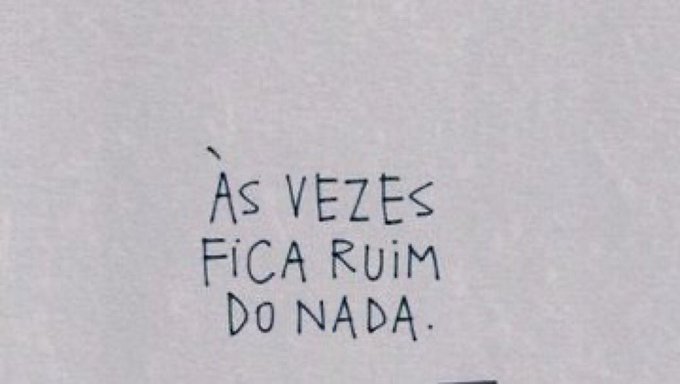 ÀS VEZES
FiCA RUiM
DO NADA.